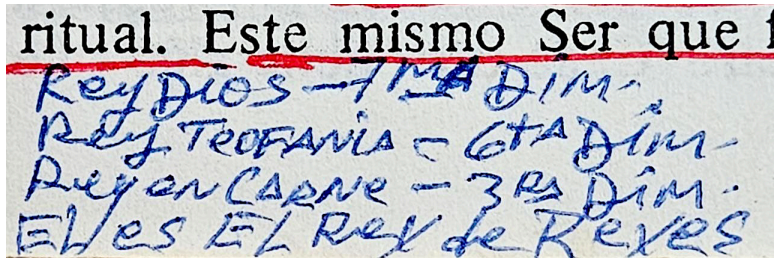 ritual. Este mismo Ser que
Rey Dios - 7MA Dim.
Rey TEOFANIA = 6TA Dim-
Rey en CARNE - 3RA Dim.
EL es EL Rey de Reyes